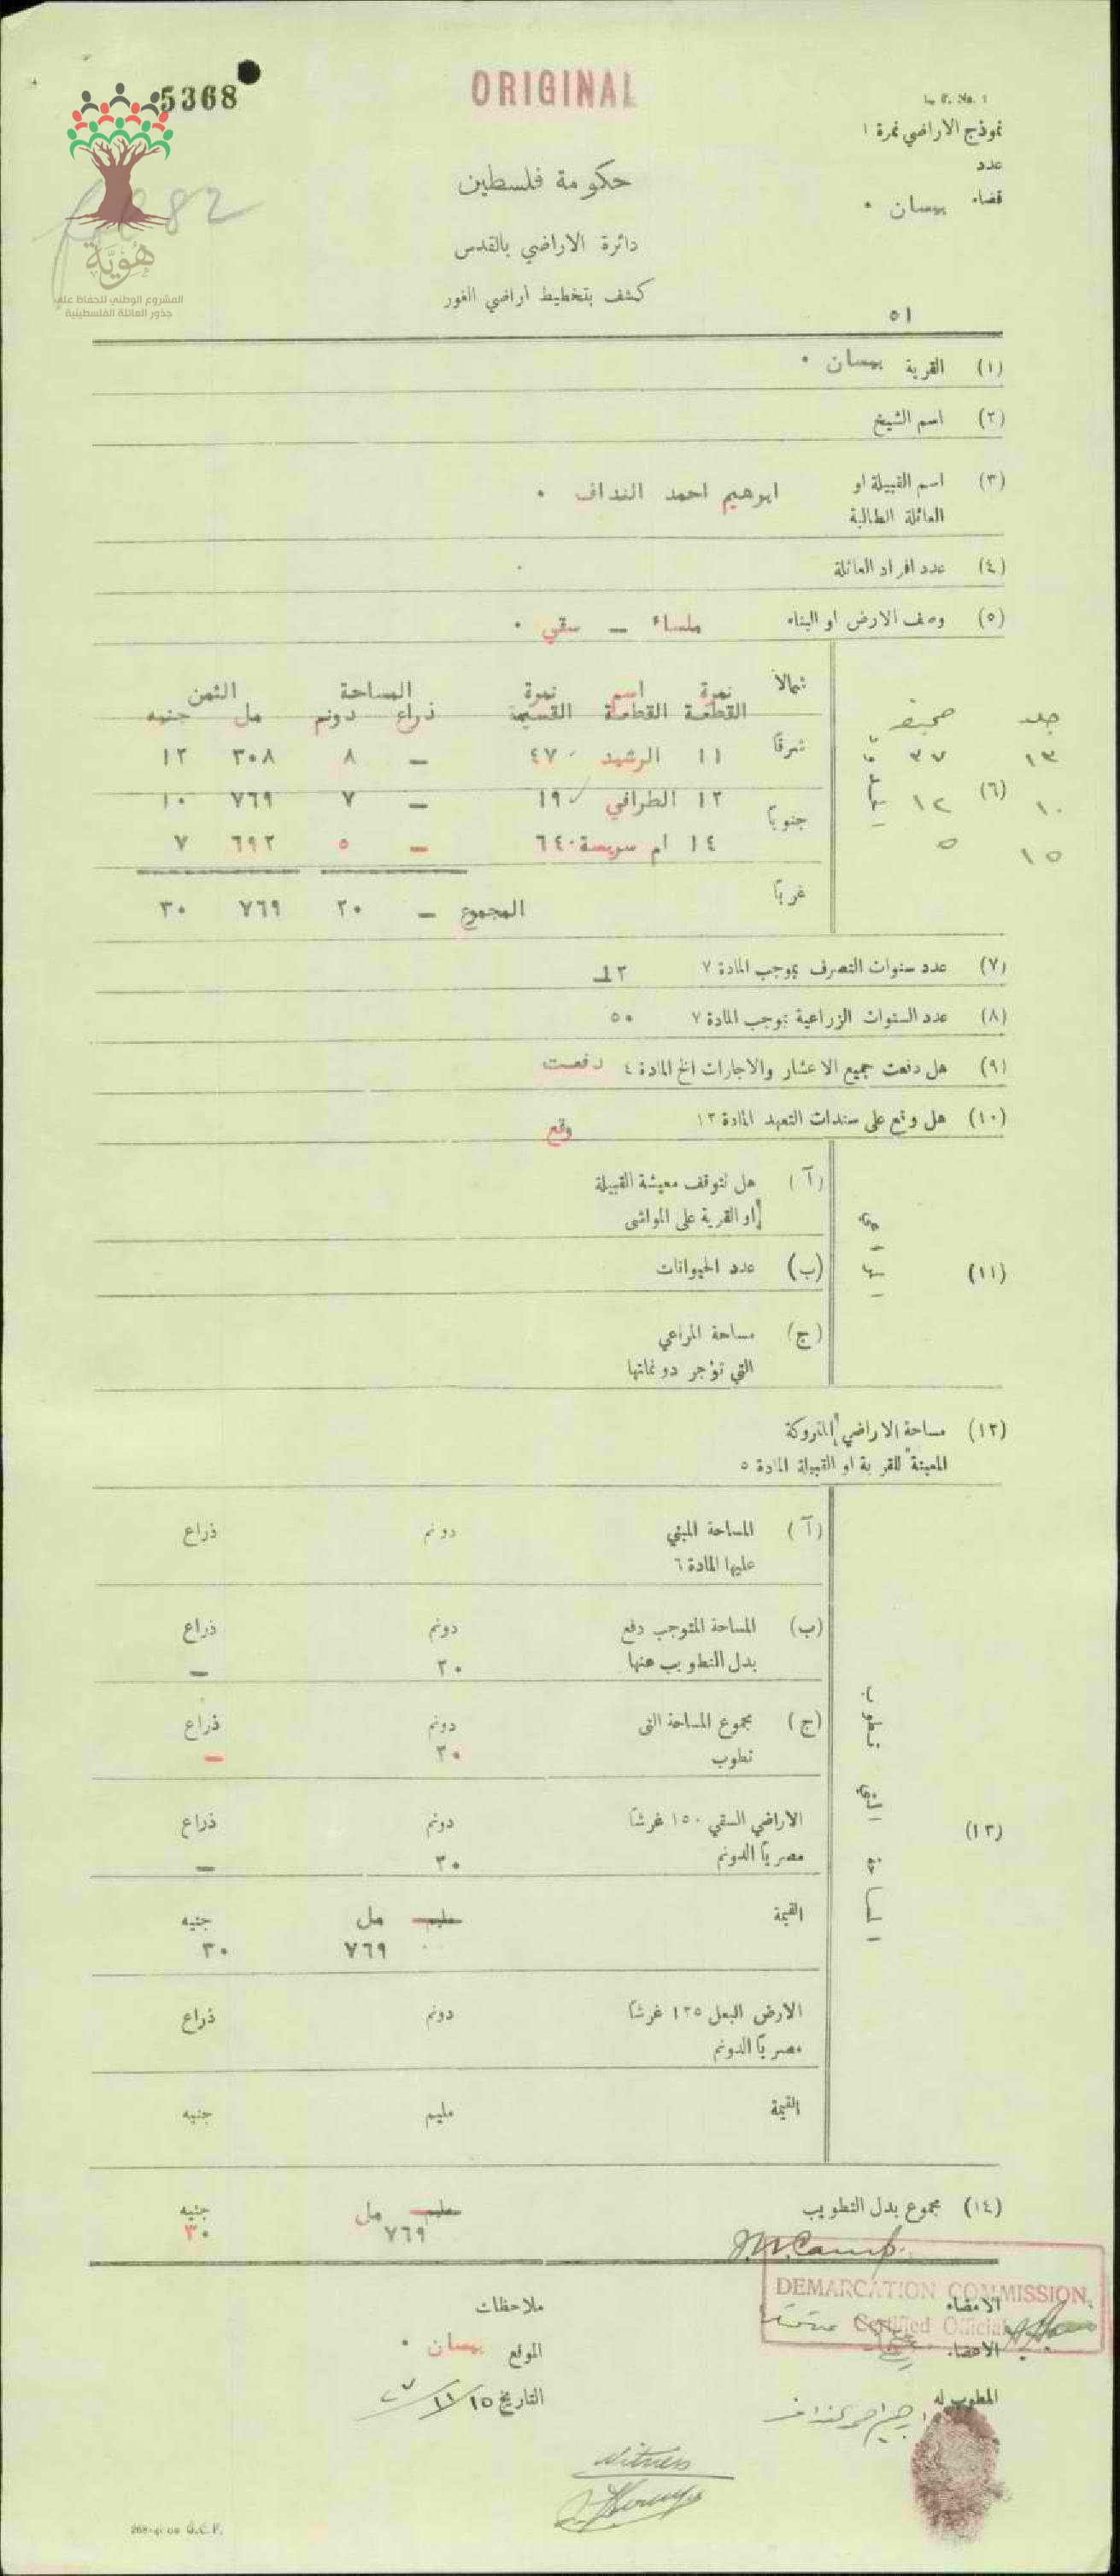 5368
ORIGINAL
L. F. No. 1
نموذج الاراضي نمرة ١
عدد
قضاء بيسان
82
هُوِيَّة
المشروع الوطني للحفاظ على
جذور العائلة الفلسطينية
حكومة فلسطين
دائرة الاراضي بالقدس
كشف بتخطيط اراضي الغور
٥١
(١) القرية بيسان
(٢) اسم الشيخ
(٣) اسم القبيلة او ابرهيم احمد النداف
العائلة الطالبة
(٤) عدد افراد العائلة
(٥) وصف الارض او البناء ملساء — سقي
شمالاً
نمرة اسم نمرة المساحة الثمن
القطعة القطعة القسيمة ذراع دونم مل جنيه
جلد صحيفة
شرقاً
١٣ ٣٧ ١١ الرشيد ٤٧ — ٨ ٣٠٨ ١٢
(٦)
١٠ ١٢ ١٢ الطرافي ١٩ — ٧ ٧٦٩ ١٠
جنوباً
١٥ ٥ ١٤ ام سريسة ٦٤٠ — ٥ ٦٩٢ ٧
غرباً
المجموع — ٢٠ ٧٦٩ ٣٠
(٧) عدد سنوات التصرف بموجب المادة ٧ ١٢
(٨) عدد السنوات الزراعية بموجب المادة ٧ ٥٠
(٩) هل دفعت جميع الاعشار والاجارات الخ المادة ٤ دفعت
(١٠) هل وقع على سندات التعهد المادة ١٣ وقع
(١١)
(آ) هل تتوقف معيشة القبيلة
او القرية على المواشي
(ب) عدد الحيوانات
(ج) مساحة المراعي
التي تؤجر دونماتها
(١٢) مساحة الاراضي المتروكة
المعينة للقرية او القبيلة المادة ٥
(١٣) المساحة التي تطوب
(آ) المساحة المبني دونم ذراع
عليها المادة ٦
(ب) المساحة المتوجب دفع دونم ذراع
بدل التطويب عنها ٢٠ —
(ج) مجموع المساحة التي دونم ذراع
تطوب ٢٠ —
الاراضي السقي ١٥٠ غرشاً دونم ذراع
مصرياً الدونم ٢٠ —
القيمة مليم مل جنيه
٧٦٩ ٣٠
الارض البعل ١٢٥ غرشاً دونم ذراع
مصرياً الدونم
القيمة مليم جنيه
(١٤) مجموع بدل التطويب مليم مل جنيه
٧٦٩ ٣٠
J.M.Camp.
DEMARCATION COMMISSION.
Certified Official
الامضاء
الاعضاء
المطوب له ابرهيم احمد النداف
ملاحظات
الموقع بيسان
التاريخ ١٥/١١/٢٧
Witness
268-4000 G.C.P.